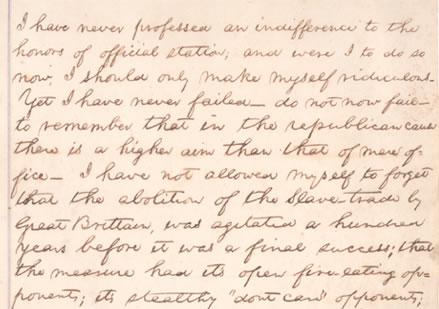 I have never professed an indifference to the
honors of official station; and were I to do so
now, I should only make myself ridiculous.
Yet I have never failed— do not now fail—
to remember that in the republican cause
there is a higher aim than that of mere of-
fice— I have not allowed myself to forget
that the abolition of the Slave-trade by
Great Brittain, was agitated a hundred
years before it was a final success; that
the measure had it's open fire-eating op-
ponents; it's stealthy "dont care" opponents;